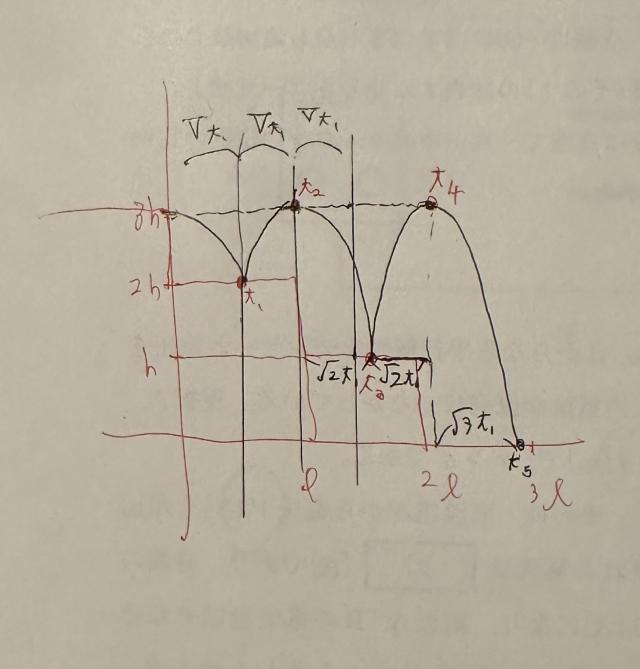 Vt₁ Vt₁ Vt₁
t₂
t₄
3h
2h
t₁
h
√2t
t₃
√2t
√3t₁
t₅
l
2l
3l